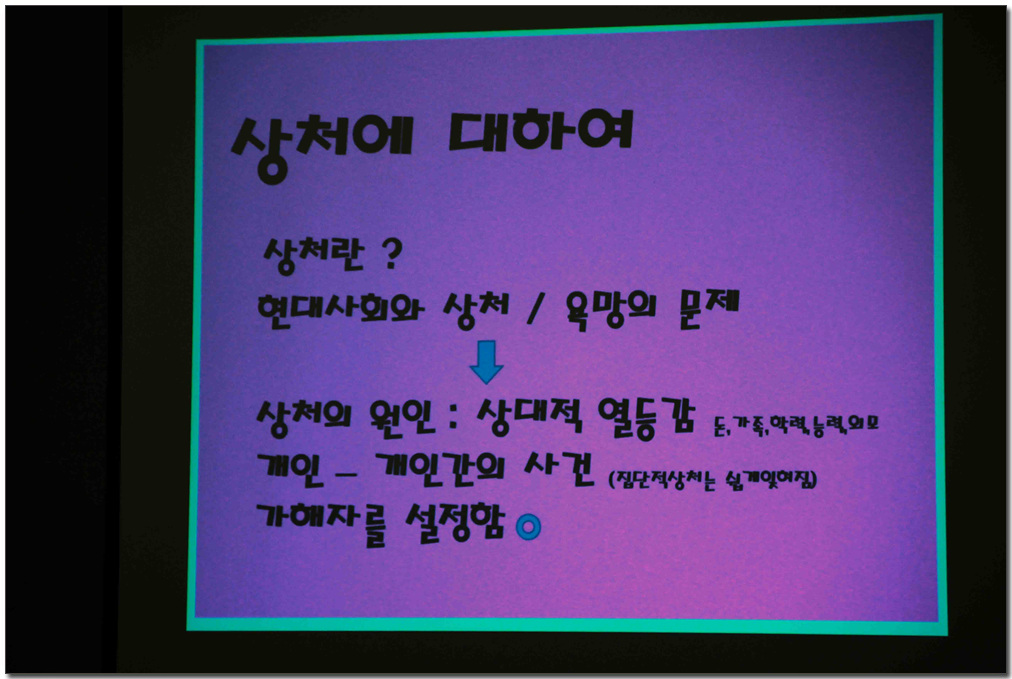 상처에 대하여
상처란 ?
현대사회와 상처 / 욕망의 문제
상처의 원인 : 상대적 열등감 돈,가족,학력,능력,외모
개인 – 개인간의 사건 (집단적상처는 쉽게잊혀짐)
가해자를 설정함